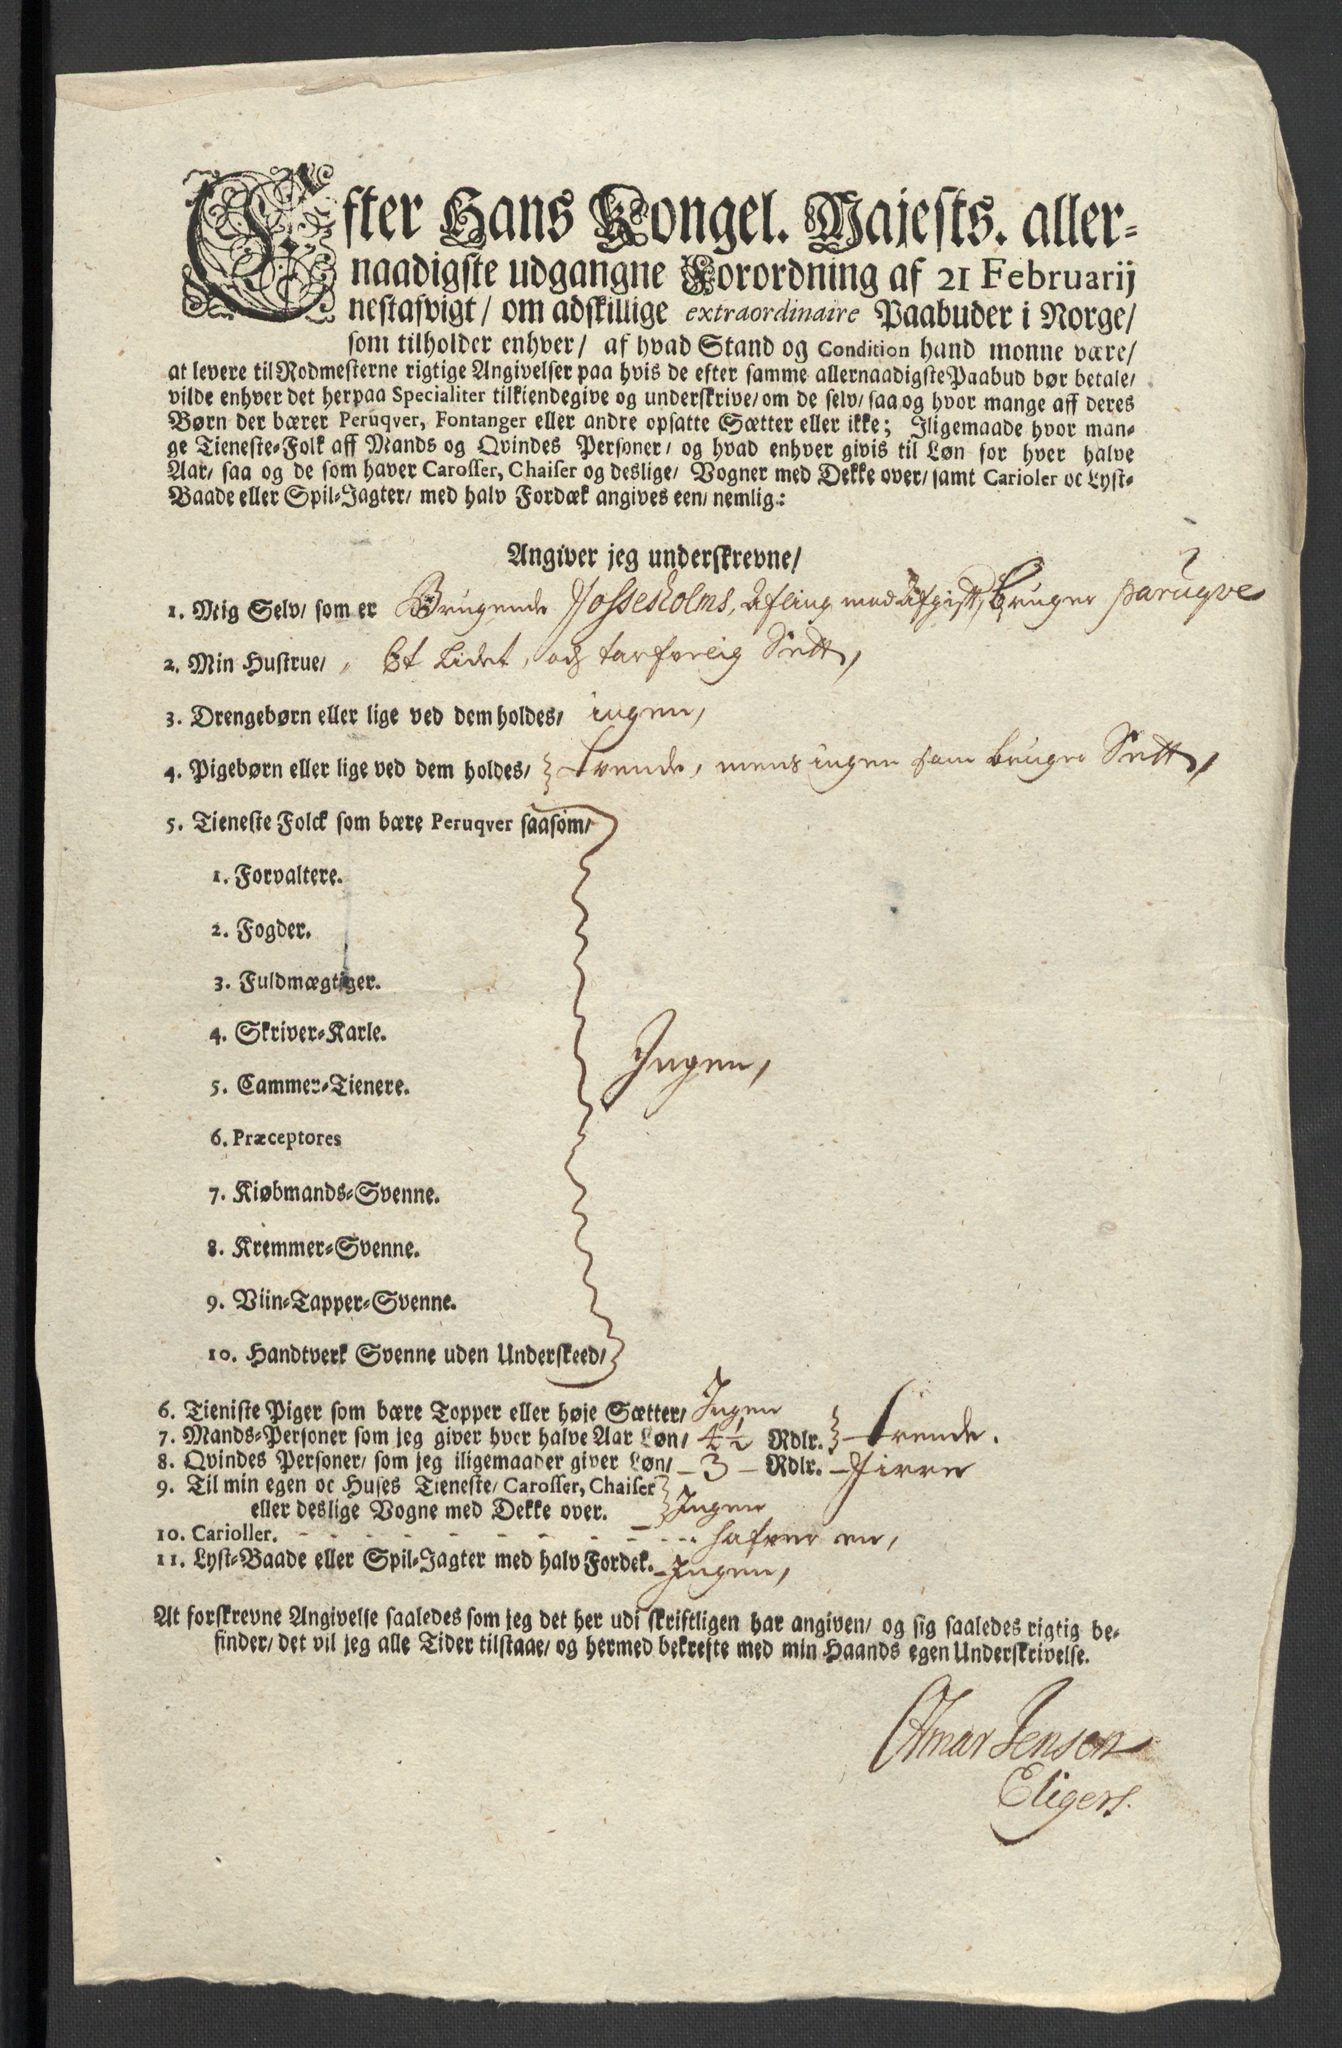 Efter Hans Kongel. Majests. aller-
naadigste udgangne Forordning af 21 Februarij
nestafvigt/ om adskillige extraordinaire Paabuder i Norge/
som tilholder enhver/ af hvad Stand og Condition hand monne være/
at levere til Rodmesterne rigtige Angivelser paa hvis de efter samme allernaadigste Paabud bør betale/
vilde enhver det herpaa Specialiter tilkiendegive og underskrive/ om de selv/ saa og hvor mange aff deres
Børn der bærer Peruqver, Fontanger eller andre opsatte Sætter eller ikke; Iligemaade hvor man-
ge Tieneste-Folk aff Mands og Qvindes Personer/ og hvad enhver givis til Løn for hver halve
Aar/ saa og de som haver Carosser, Chaiser og deslige/ Vogner med Dekke over/ samt Carioler oc Lyst-
Baade eller Spil-Jagter/ med halv Fordæk angives een/ nemlig:
Angiver jeg underskrevne/
1. Mig Selv/ som er Brugende Josseholms, Afling med Afgift, bruger parugve
2. Min Hustrue/ Et lidet, och tarfvelig Sett,
3. Drengebørn eller lige ved dem holdes/ ingen,
4. Pigebørn eller lige ved dem holdes/ trende, mens ingen som bruger Sett,
5. Tieneste Folck som bære Peruqver saasom/
1. Forvaltere.
2. Fogder.
3. Fuldmægtiger.
4. Skriver-Karle.
5. Cammer-Tienere.
Ingen,
6. Præceptores
7. Kiøbmands-Svenne.
8. Kremmer-Svenne.
9. Viin-Tapper-Svenne.
10. Handtverk Svenne uden Underskeed/
6. Tieniste Piger som bære Topper eller høje Sætter/ Ingen
7. Mands-Personer som jeg giver hver halve Aar Løn/ 4½ Rdlr. trende.
8. Qvindes Personer/ som jeg iligemaader giver Løn/ 3 Rdlr. Firre
9. Til min egen oc Huses Tieneste/ Carosser, Chaiser
eller deslige Vogne med Dekke over. Ingen
10. Carioller. hafver en,
11. Lyst-Baade eller Spil-Jagter med halv Fordek. Ingen,
At forskrevne Angivelse saaledes som jeg det her udi skriftligen har angiven/ og sig saaledes rigtig be-
finder/ det vil jeg alle Tider tilstaae/ og hermed bekrefte med min Haands egen Underskrivelse.
Jensen
Eligers.